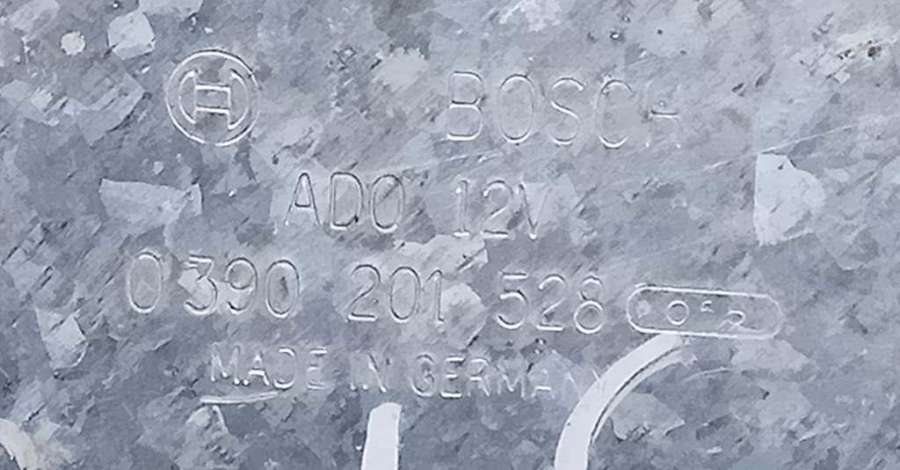 BOSCH
AD0 12V
0 390 201 528
MADE IN GERMANY